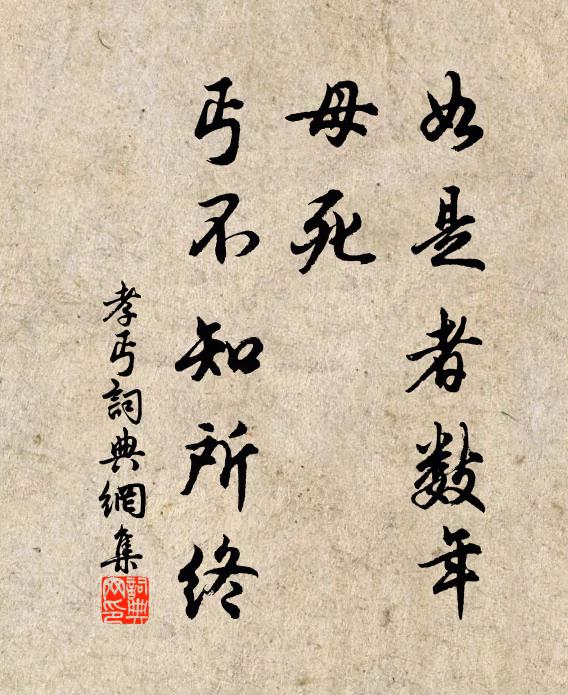 如是者數年
母死
丐不知所終
孝丐詞典網集
詞典网印